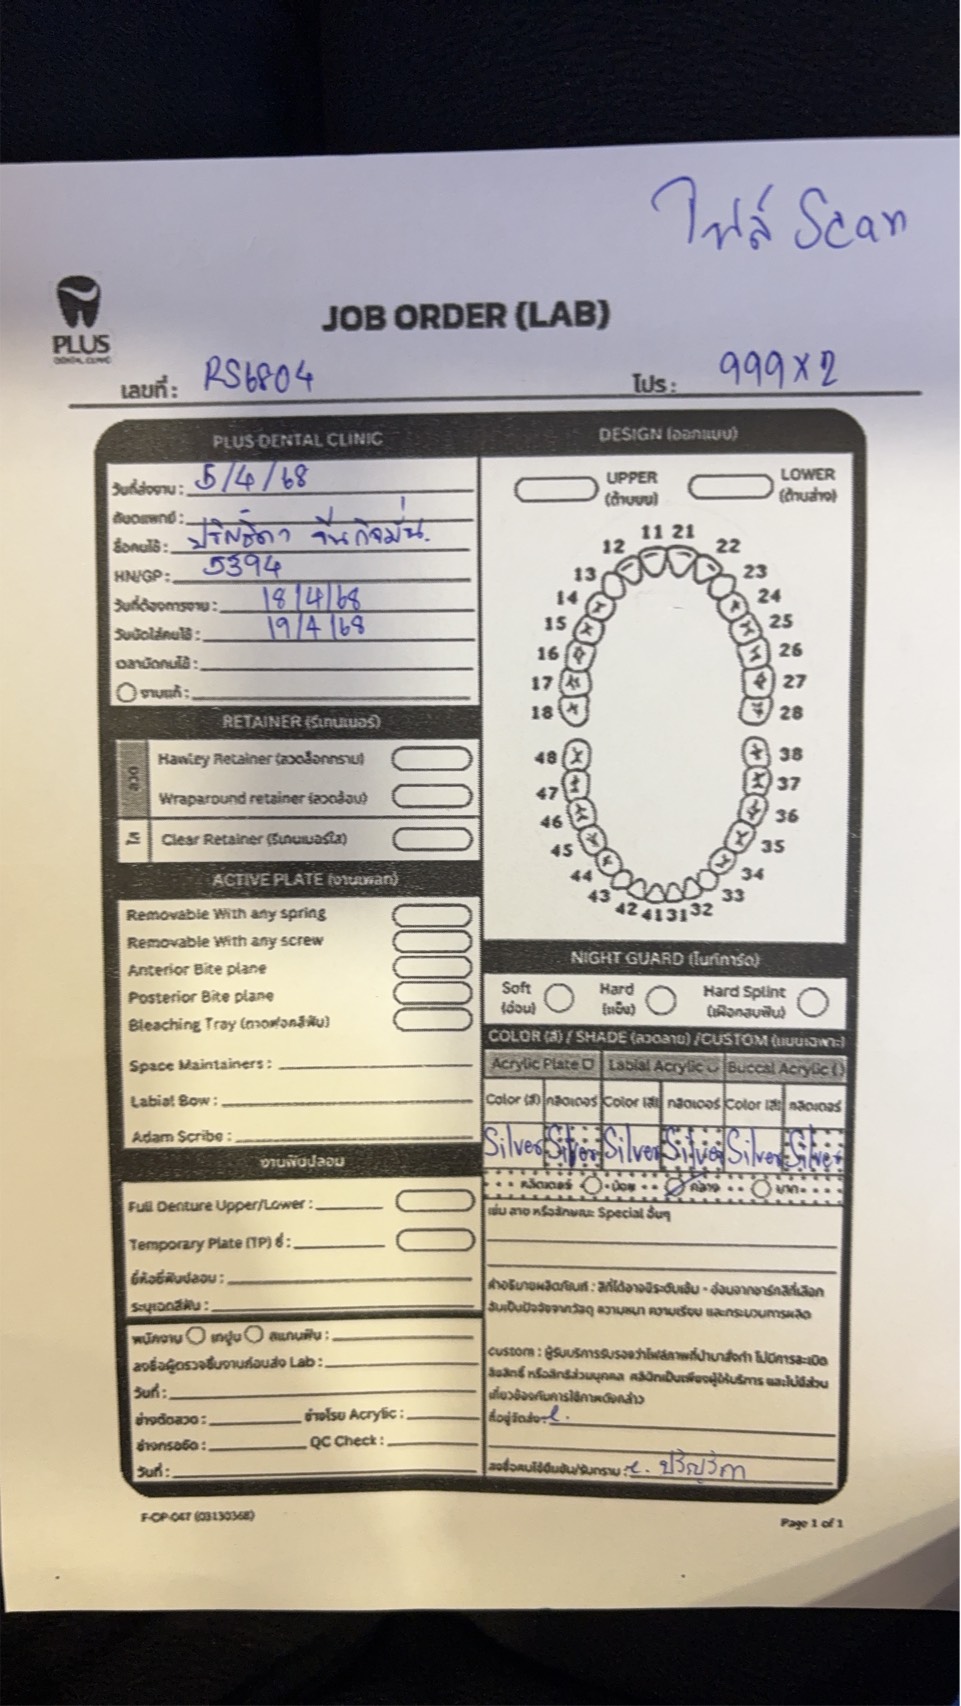 ไฟล์ Scan
PLUS
DENTAL CLINIC
JOB ORDER (LAB)
เลขที่ : RS6804
โปร : 999 x 2
PLUS DENTAL CLINIC
วันที่ส่งงาน : 5/4/68
ทันตแพทย์ :
ชื่อคนไข้ :
HN/GP : 5394
วันที่ต้องการงาน : 18/4/68
วันนัดใส่คนไข้ : 19/4/68
เวลานัดคนไข้ :
งานแก้ :
RETAINER (รีเทนเนอร์)
ลวด
Hawley Retainer (ลวดล็อกกราม)
Wraparound retainer (ลวดอ้อม)
ใส
Clear Retainer (รีเทนเนอร์ใส)
ACTIVE PLATE (งานเพลท)
Removable With any spring
Removable With any screw
Anterior Bite plane
Posterior Bite plane
Bleaching Tray (ถาดฟอกสีฟัน)
Space Maintainers :
Labial Bow :
Adam Scribe :
งานฟันปลอม
Full Denture Upper/Lower :
Temporary Plate (TP) ซี่ :
ยี่ห้อซี่ฟันปลอม :
ระบุเฉดสีฟัน :
พนักงาน เทปูน สแกนฟัน :
ลงชื่อผู้ตรวจชิ้นงานก่อนส่ง Lab :
วันที่ :
ช่างดัดลวด : ช่างโรย Acrylic :
ช่างกรอขัด : QC Check :
วันที่ :
DESIGN (ออกแบบ)
UPPER
(ด้านบน)
LOWER
(ด้านล่าง)
11 21
12 22
13 23
14 24
15 25
16 26
17 27
18 28
48 38
47 37
46 36
45 35
44 34
43 33
42 41 31 32
NIGHT GUARD (ไนท์การ์ด)
Soft
(อ่อน)
Hard
(แข็ง)
Hard Splint
(เฝือกสบฟัน)
COLOR (สี) / SHADE (ลวดลาย) /CUSTOM (แบบเฉพาะ)
Acrylic Plate Labial Acrylic Buccal Acrylic
Color (สี) กลิตเตอร์ Color (สี) กลิตเตอร์ Color (สี) กลิตเตอร์
Silver Silver Silver Silver Silver Silver
กลิตเตอร์ น้อย กลาง มาก
เช่น ลาย หรือลักษณะ Special อื่นๆ
คำอธิบายผลิตภัณฑ์ : สีที่ได้อาจมีระดับเข้ม - อ่อนจากชาร์ทสีที่เลือก
อันเป็นปัจจัยจากวัสดุ ความหนา ความเรียบ และกระบวนการผลิต
custom : ผู้รับบริการรับรองว่าไฟล์ภาพที่นำมาสั่งทำ ไม่มีการละเมิด
ลิขสิทธิ์ หรือสิทธิส่วนบุคคล คลินิกเป็นเพียงผู้ให้บริการ และไม่มีส่วน
เกี่ยวข้องกับการใช้ภาพดังกล่าว
ที่อยู่จัดส่ง :
ลงชื่อคนไข้ยืนยัน/รับทราบ :
F-OP-047 (03130368)
Page 1 of 1